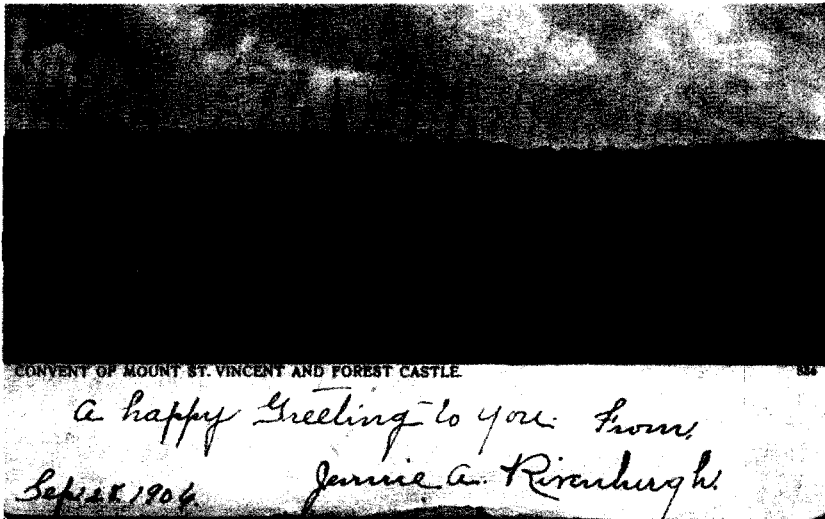 CONVENT OF MOUNT ST. VINCENT AND FOREST CASTLE.
a happy Greeting to you. From.
Jennie. A. Rivenburgh.
1906.